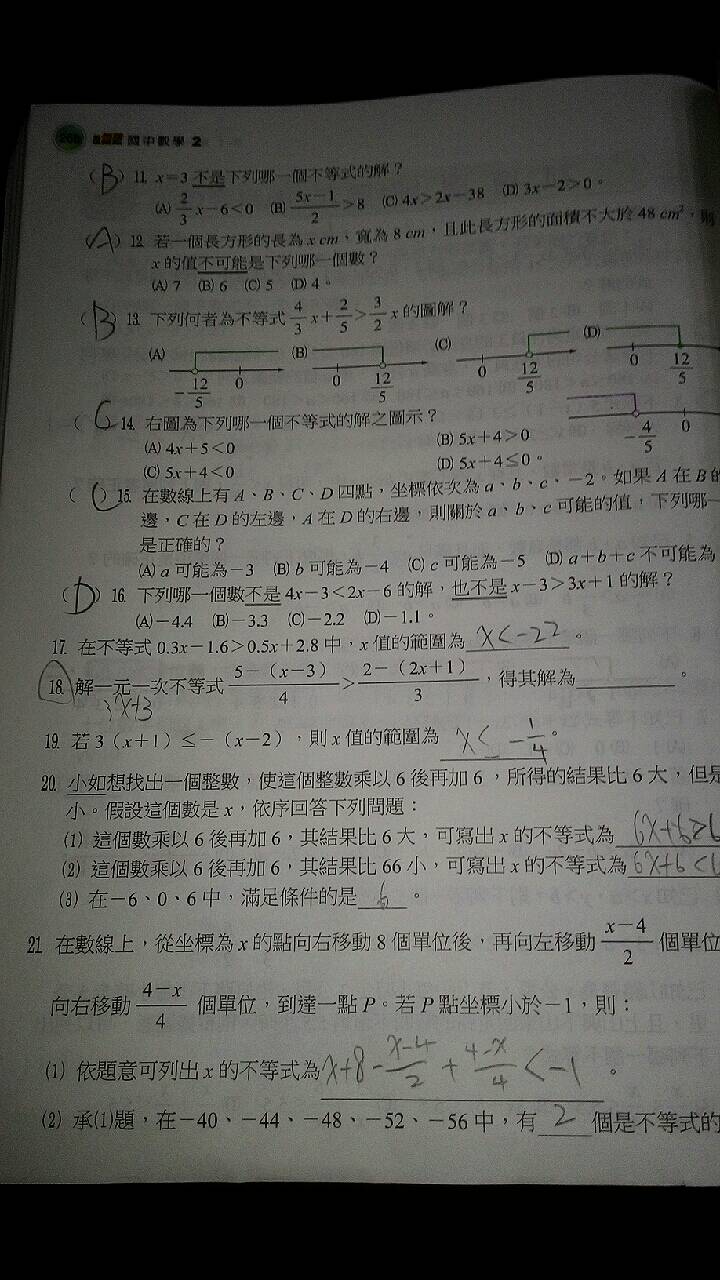 國中數學 2
(B) 11. x=3 不是下列哪一個不等式的解？
(A) 2/3 x-6<0 (B) 5x-1/2 >8 (C) 4x>2x-38 (D) 3x-2>0。
(A) 12. 若一個長方形的長為 x cm、寬為 8 cm，且此長方形的面積不大於 48 cm²，則
x 的值不可能是下列哪一個數？
(A) 7 (B) 6 (C) 5 (D) 4。
(B) 13. 下列何者為不等式 4/3 x+2/5>3/2 x 的圖解？
(A) (B) (C) (D)
-12/5 0 0 12/5 0 12/5 0 12/5
(C 14. 右圖為下列哪一個不等式的解之圖示？
-4/5 0
(A) 4x+5<0 (B) 5x+4>0
(C) 5x+4<0 (D) 5x-4≤0。
(C) 15. 在數線上有 A、B、C、D 四點，坐標依次為 a、b、c、-2。如果 A 在 B 的
邊，C 在 D 的左邊，A 在 D 的右邊，則關於 a、b、c 可能的值，下列哪一
是正確的？
(A) a 可能為-3 (B) b 可能為-4 (C) c 可能為-5 (D) a+b+c 不可能為
(D) 16. 下列哪一個數不是 4x-3<2x-6 的解，也不是 x-3>3x+1 的解？
(A)-4.4 (B)-3.3 (C)-2.2 (D)-1.1。
17. 在不等式 0.3x-1.6>0.5x+2.8 中，x 值的範圍為 x<-22。
18. 解一元一次不等式 5-(x-3)/4 > 2-(2x+1)/3，得其解為________。
3x+3
19. 若 3(x+1)≤-(x-2)，則 x 值的範圍為 x≤-1/4。
20. 小如想找出一個整數，使這個整數乘以 6 後再加 6，所得的結果比 6 大，但是
小。假設這個數是 x，依序回答下列問題：
(1) 這個數乘以 6 後再加 6，其結果比 6 大，可寫出 x 的不等式為 6x+6≥6
(2) 這個數乘以 6 後再加 6，其結果比 66 小，可寫出 x 的不等式為 6x+6<
(3) 在-6、0、6 中，滿足條件的是 6。
21. 在數線上，從坐標為 x 的點向右移動 8 個單位後，再向左移動 x-4/2 個單位
向右移動 4-x/4 個單位，到達一點 P。若 P 點坐標小於-1，則：
(1) 依題意可列出 x 的不等式為 x+8-x-4/2+4-x/4<-1。
(2) 承(1)題，在-40、-44、-48、-52、-56 中，有 2 個是不等式的